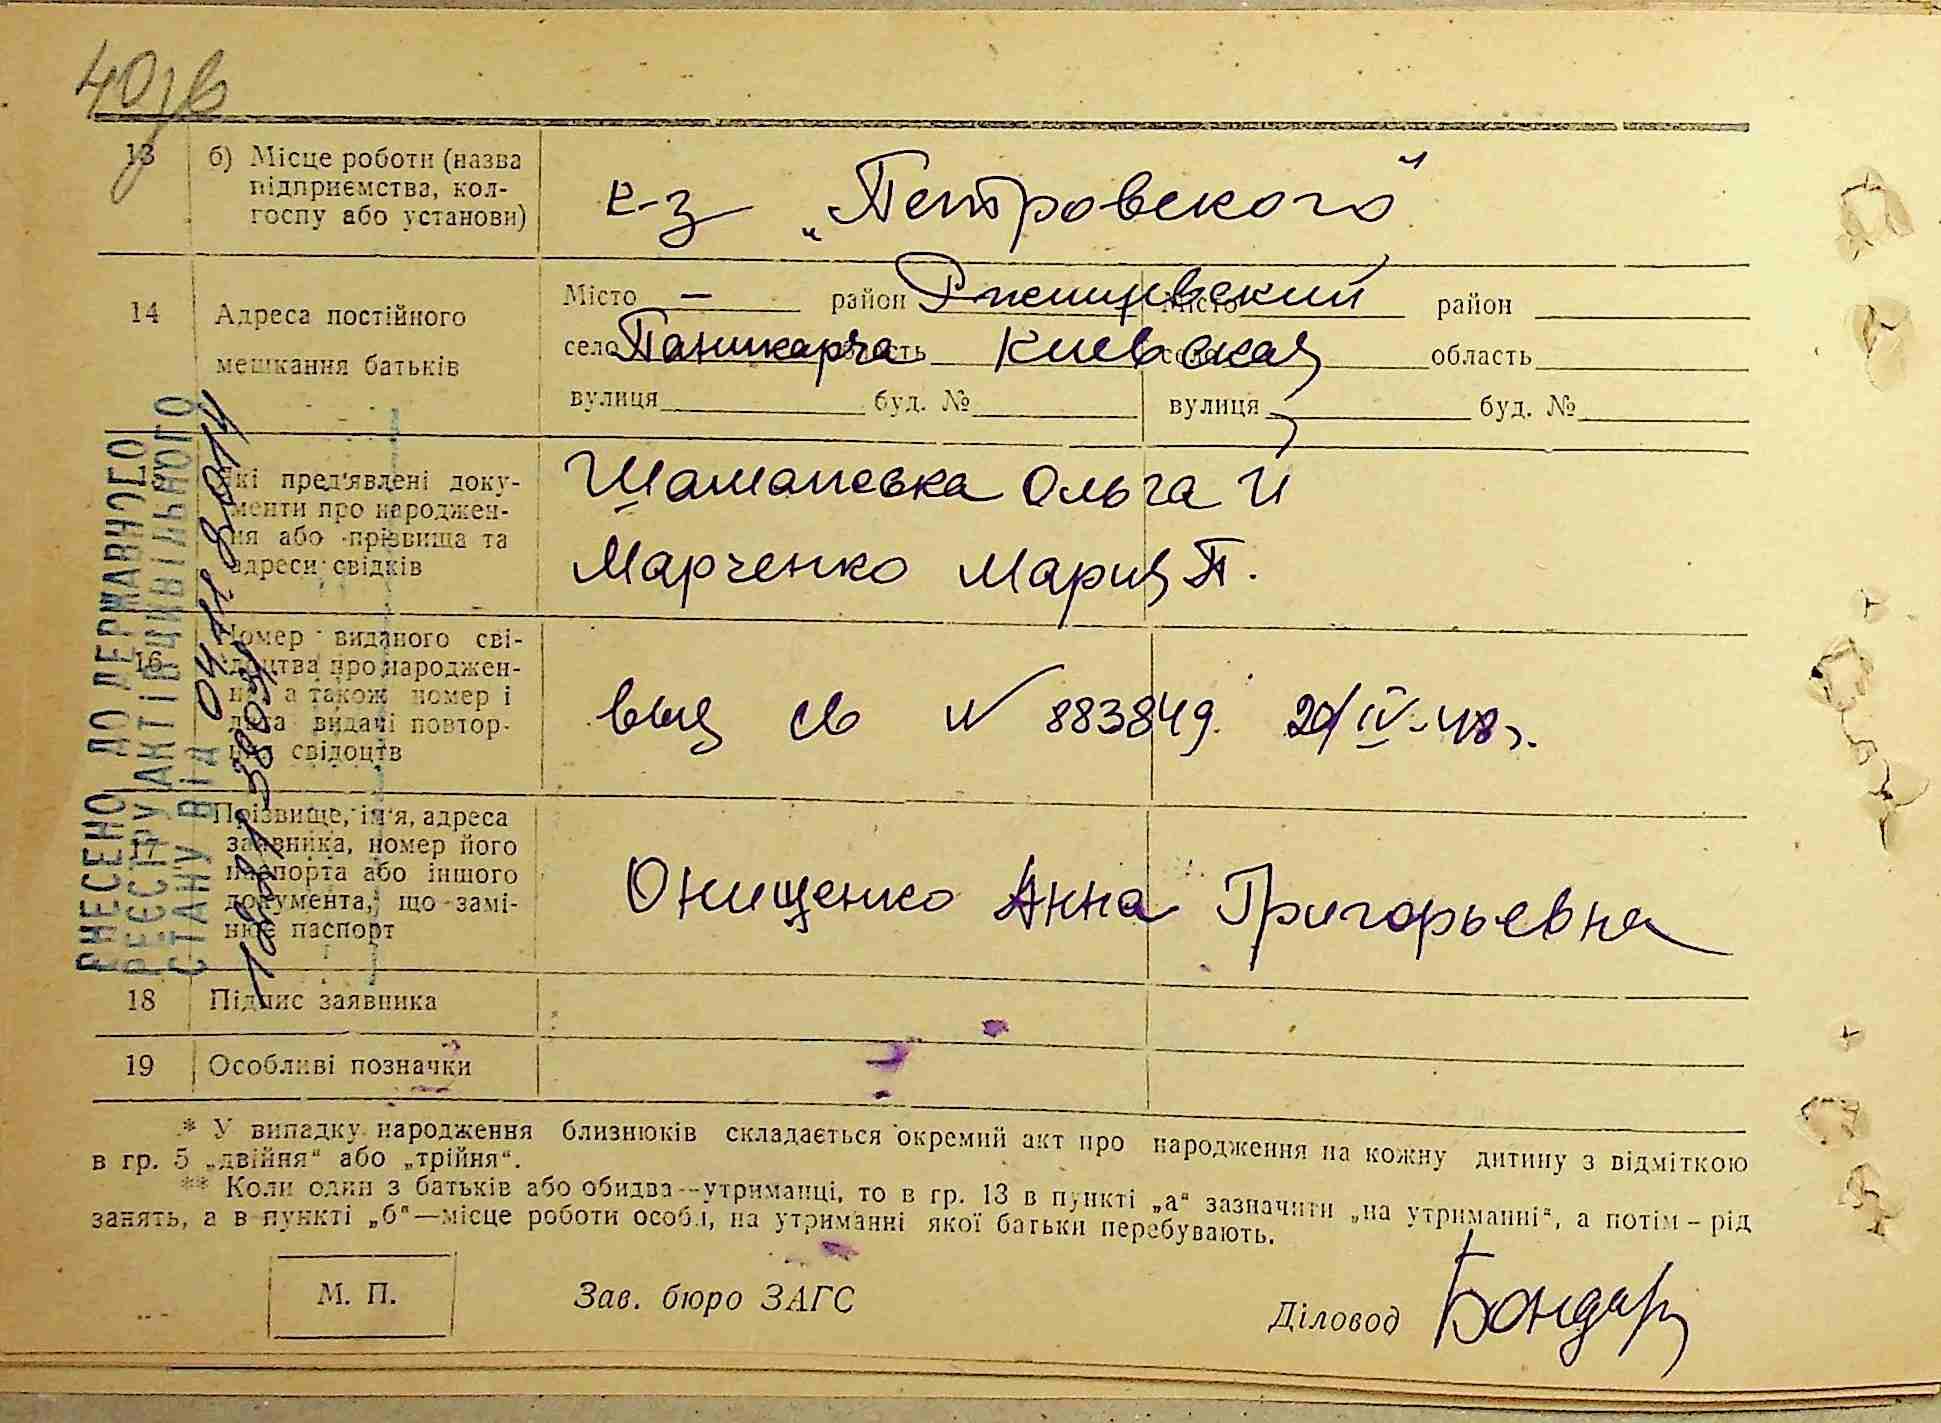 40зв
13 б) Місце роботи (назва
підприємства, кол-
госпу або установи)
к-з „Петровского"
14 Адреса постійного
мешкання батьків
Місто — район Ржищевский Місто район
село Паникарча область Киевская село область
вулиця буд. № вулиця буд. №
15 Які пред'явлені доку-
менти про народжен-
ня або прізвища та
адреси свідків
Ольга И
Марченко Мария П.
16 Номер виданого сві-
доцтва про народжен-
ня, а також номер і
дата видачі повтор-
них свідоцтв
св N 883849. 20/IV-48г.
17 Прізвище, ім'я, адреса
заявника, номер його
паспорта або іншого
документа, що замі-
нює паспорт
Онищенко Анна Григорьевна
18 Підпис заявника
19 Особливі позначки
ВНЕСЕНО ДО ДЕРЖАВНОГО
РЕЄСТРУ АКТІВ ЦИВІЛЬНОГО
СТАНУ ВІД 04.11.2014
* У випадку народження близнюків складається окремий акт про народження на кожну дитину з відміткою
в гр. 5 „двійня" або „трійня".
** Коли один з батьків або обидва—утриманці, то в гр. 13 в пункті „а" зазначити „на утриманні", а потім – рід
занять, а в пункті „б"—місце роботи особи, на утриманні якої батьки перебувають.
М. П. Зав. бюро ЗАГС Діловод Бондар